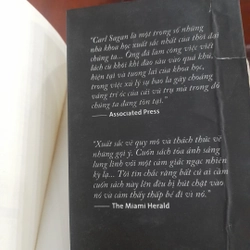 "Carl Sagan là một trong số những
nhà khoa học xuất sắc nhất của thời đại
chúng ta... Ông đã làm công việc viết
lách cừ khôi khi đào sâu vào quá khứ,
hiện tại và tương lai của khoa học,
trong việc xử lý sự bao la gây choáng
váng trí óc của cái vũ trụ mà trong đó
chúng ta đang tồn tại."
— Associated Press
"Xuất sắc về quy mô và thách thức về
những gợi ý. Cuốn sách tỏa ánh sáng
lung linh với một cảm giác ngạc nhiên
kỳ lạ... Tôi tin chắc rằng bất cứ ai cầm
cuốn sách này lên đều bị hút chặt vào
nó và cảm thấy thấp bé đi vì nó."
— The Miami Herald